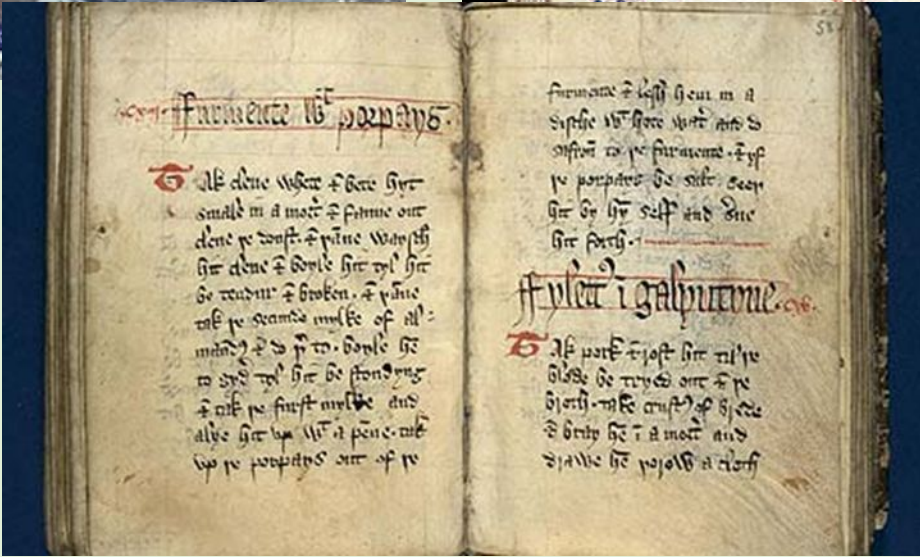 Furmente wt porpays.
Tak clene whete & bete hyt
smale in a mort' & fanne out
clene þe doust. & þane waysch
hit clene & boyle hit tyl hit
be tendur & broken. & þane
tak þe secunde mylke of al=
mandꝭ & do þ' to. boyle hē
to gyd' tyl hit be stondyng
& tak þe furst mylke and
alye hit up wt a pēne. tak
up þe porpays out of þe
58
furmente & lesh hem in a
dische wt hote wat' and do
safron to þe furmente. & yf
þe porpays be salt. seeþ
hit by hȳ self and s'ue
hit forth.
ffylett' ī galyntyne.
Tak pork & rost hit til þe
blode be tryed out & þe
broth. take crustꝭ of brede
& bray hē ī a mort' and
drawe hē þorow a cloth